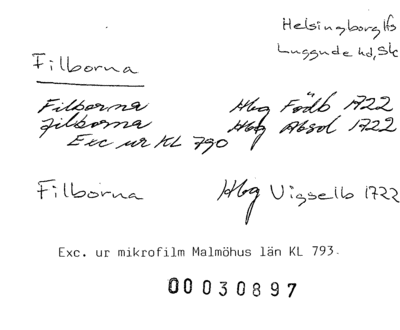 Helsingborg lfs
Luggude hd, Sk
Filborna
Filborna Hbg Födb 1722
Filborna Hbg Absol 1722
Exc ur KL 790
Filborna Hbg Vigselb 1722
Exc. ur mikrofilm Malmöhus län KL 793.
00030897